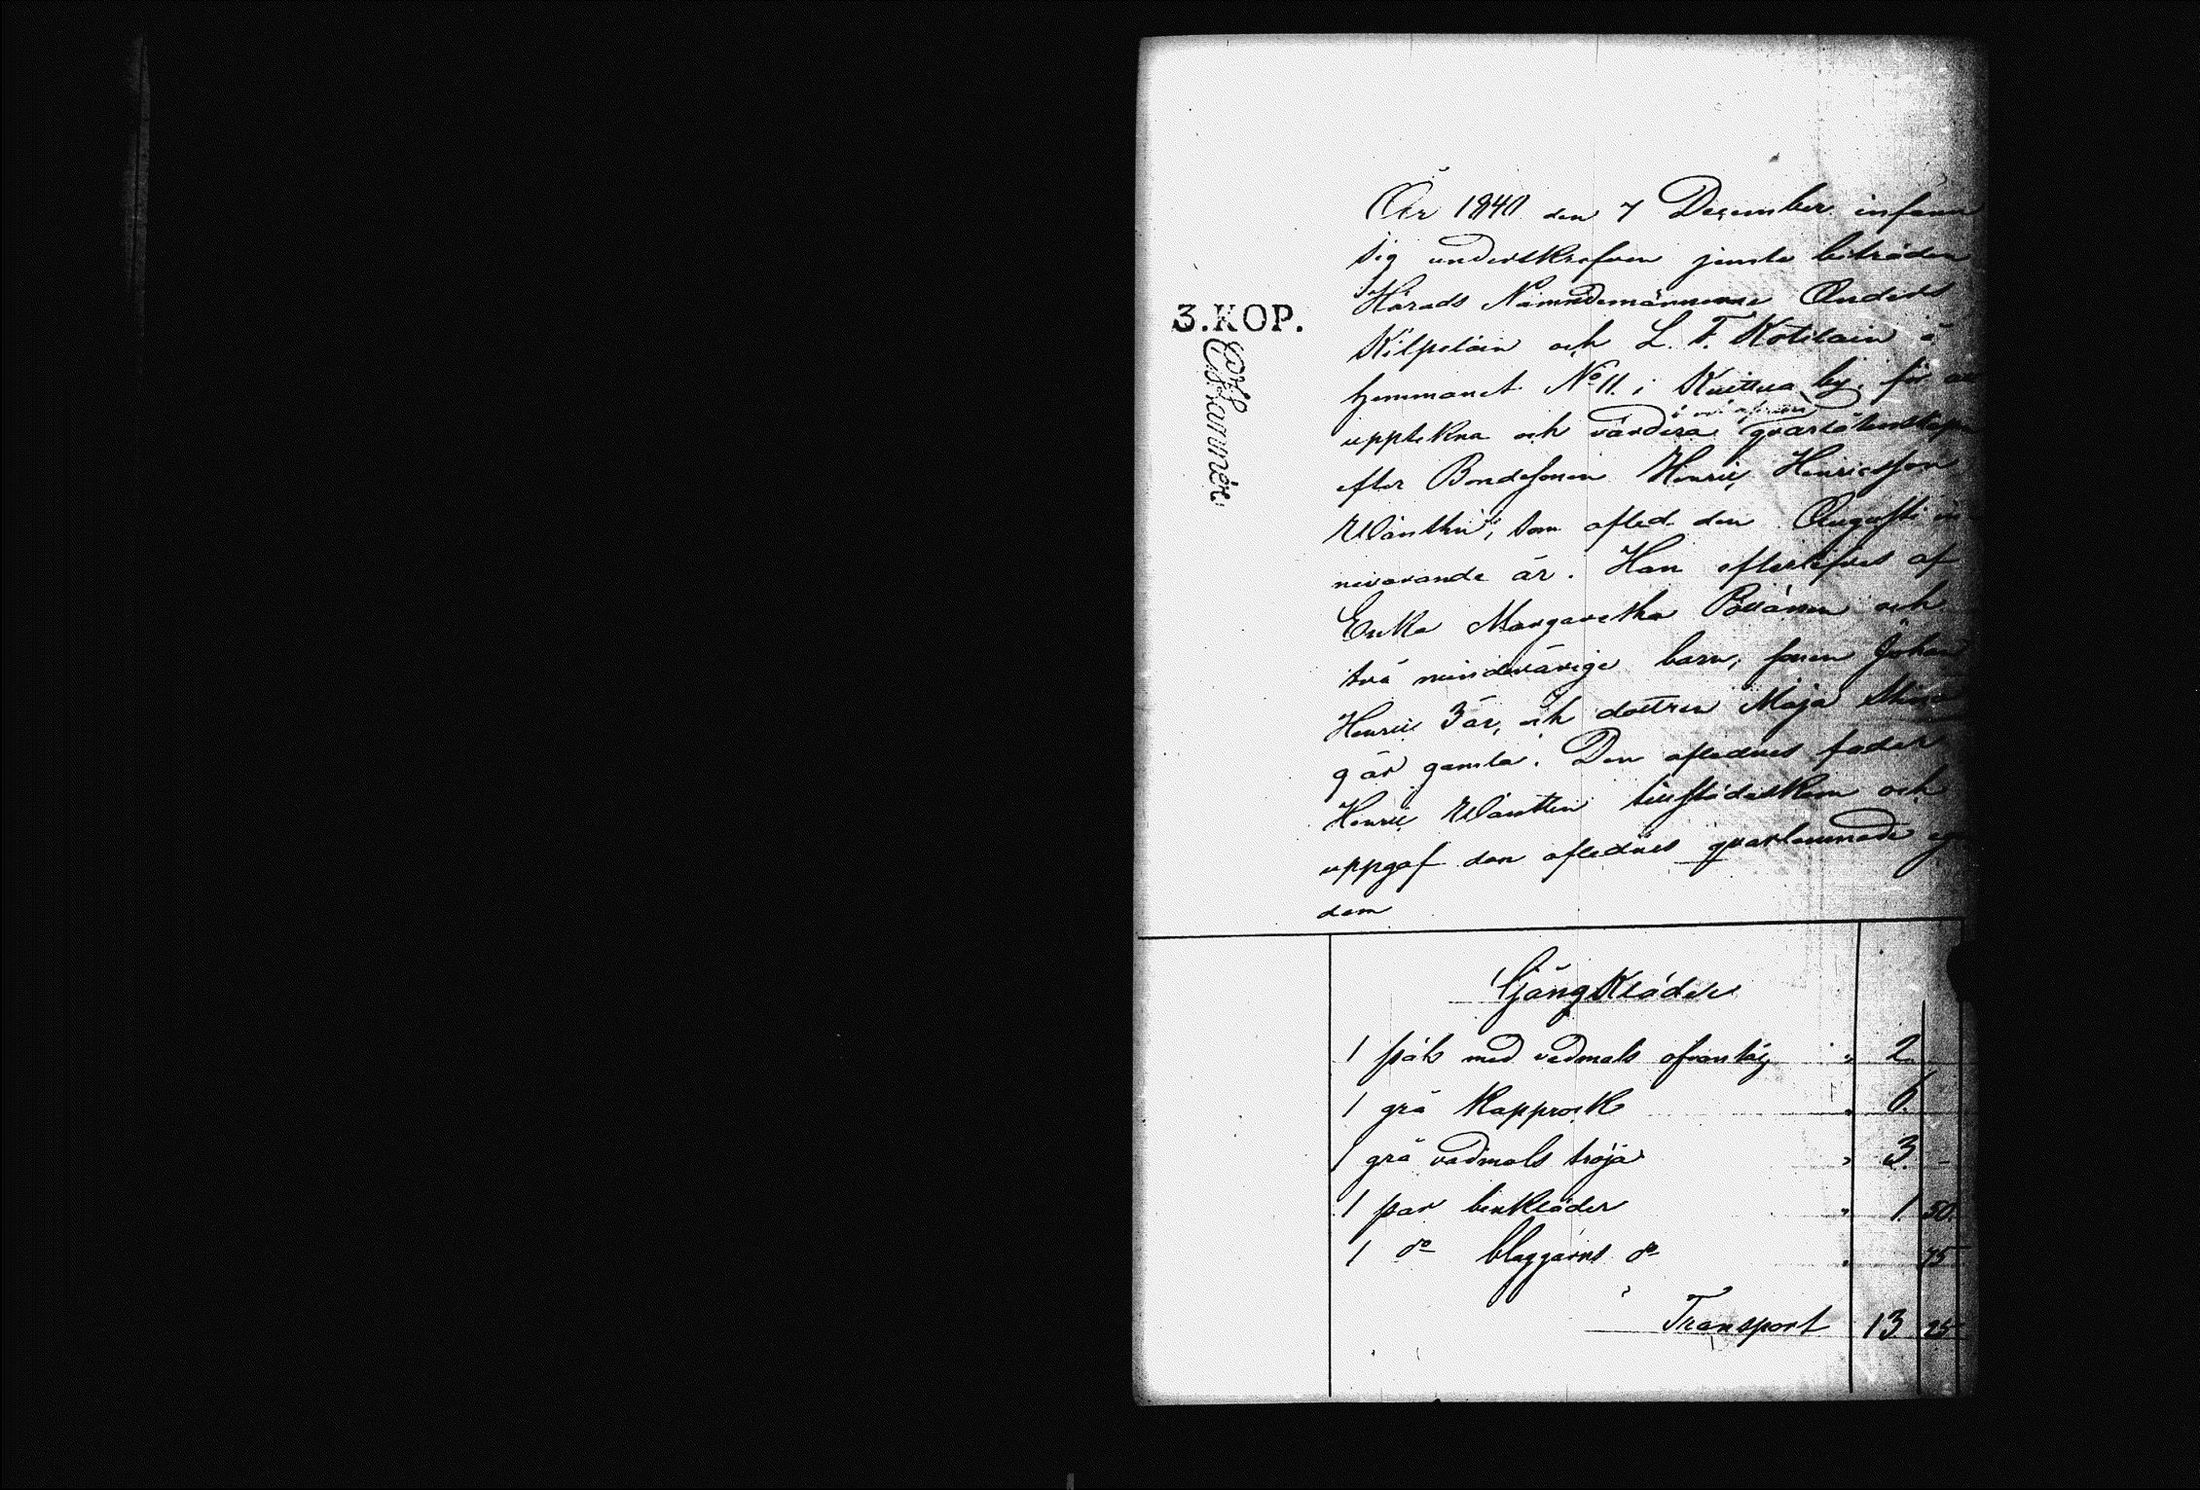 År 1840 den 7 December infann
sig underskrefven jemte biträden
Härads Nämndemännerne Anders
Kilpeläin och L. F. Kotilain å
hemmanet No 11 i Kuittua by, för att
upptekna och värdera qvarlåtenskapen
efter Bondesonen Henric Henricsson
Wänthin, som afled den Augusti in
nevarande år. Han efterlefves af
Enka Margaretha och
två minderårige barn, sonen Johan
Henric 3 år, och dottren Maja Stina
9 år gamla. Den aflednes fader
Henric Wäntten och
uppgaf den aflednes qvarlemnade egen
dom
3.KOP.
Gång Kläder
1 päls med vadmals " 2
1 grå Kapprock " 6.
1 grå vadmals tröja " 3. -
1 par benkläder " 1. 50.
1 do blaggarns do " 75
Transport 13 25